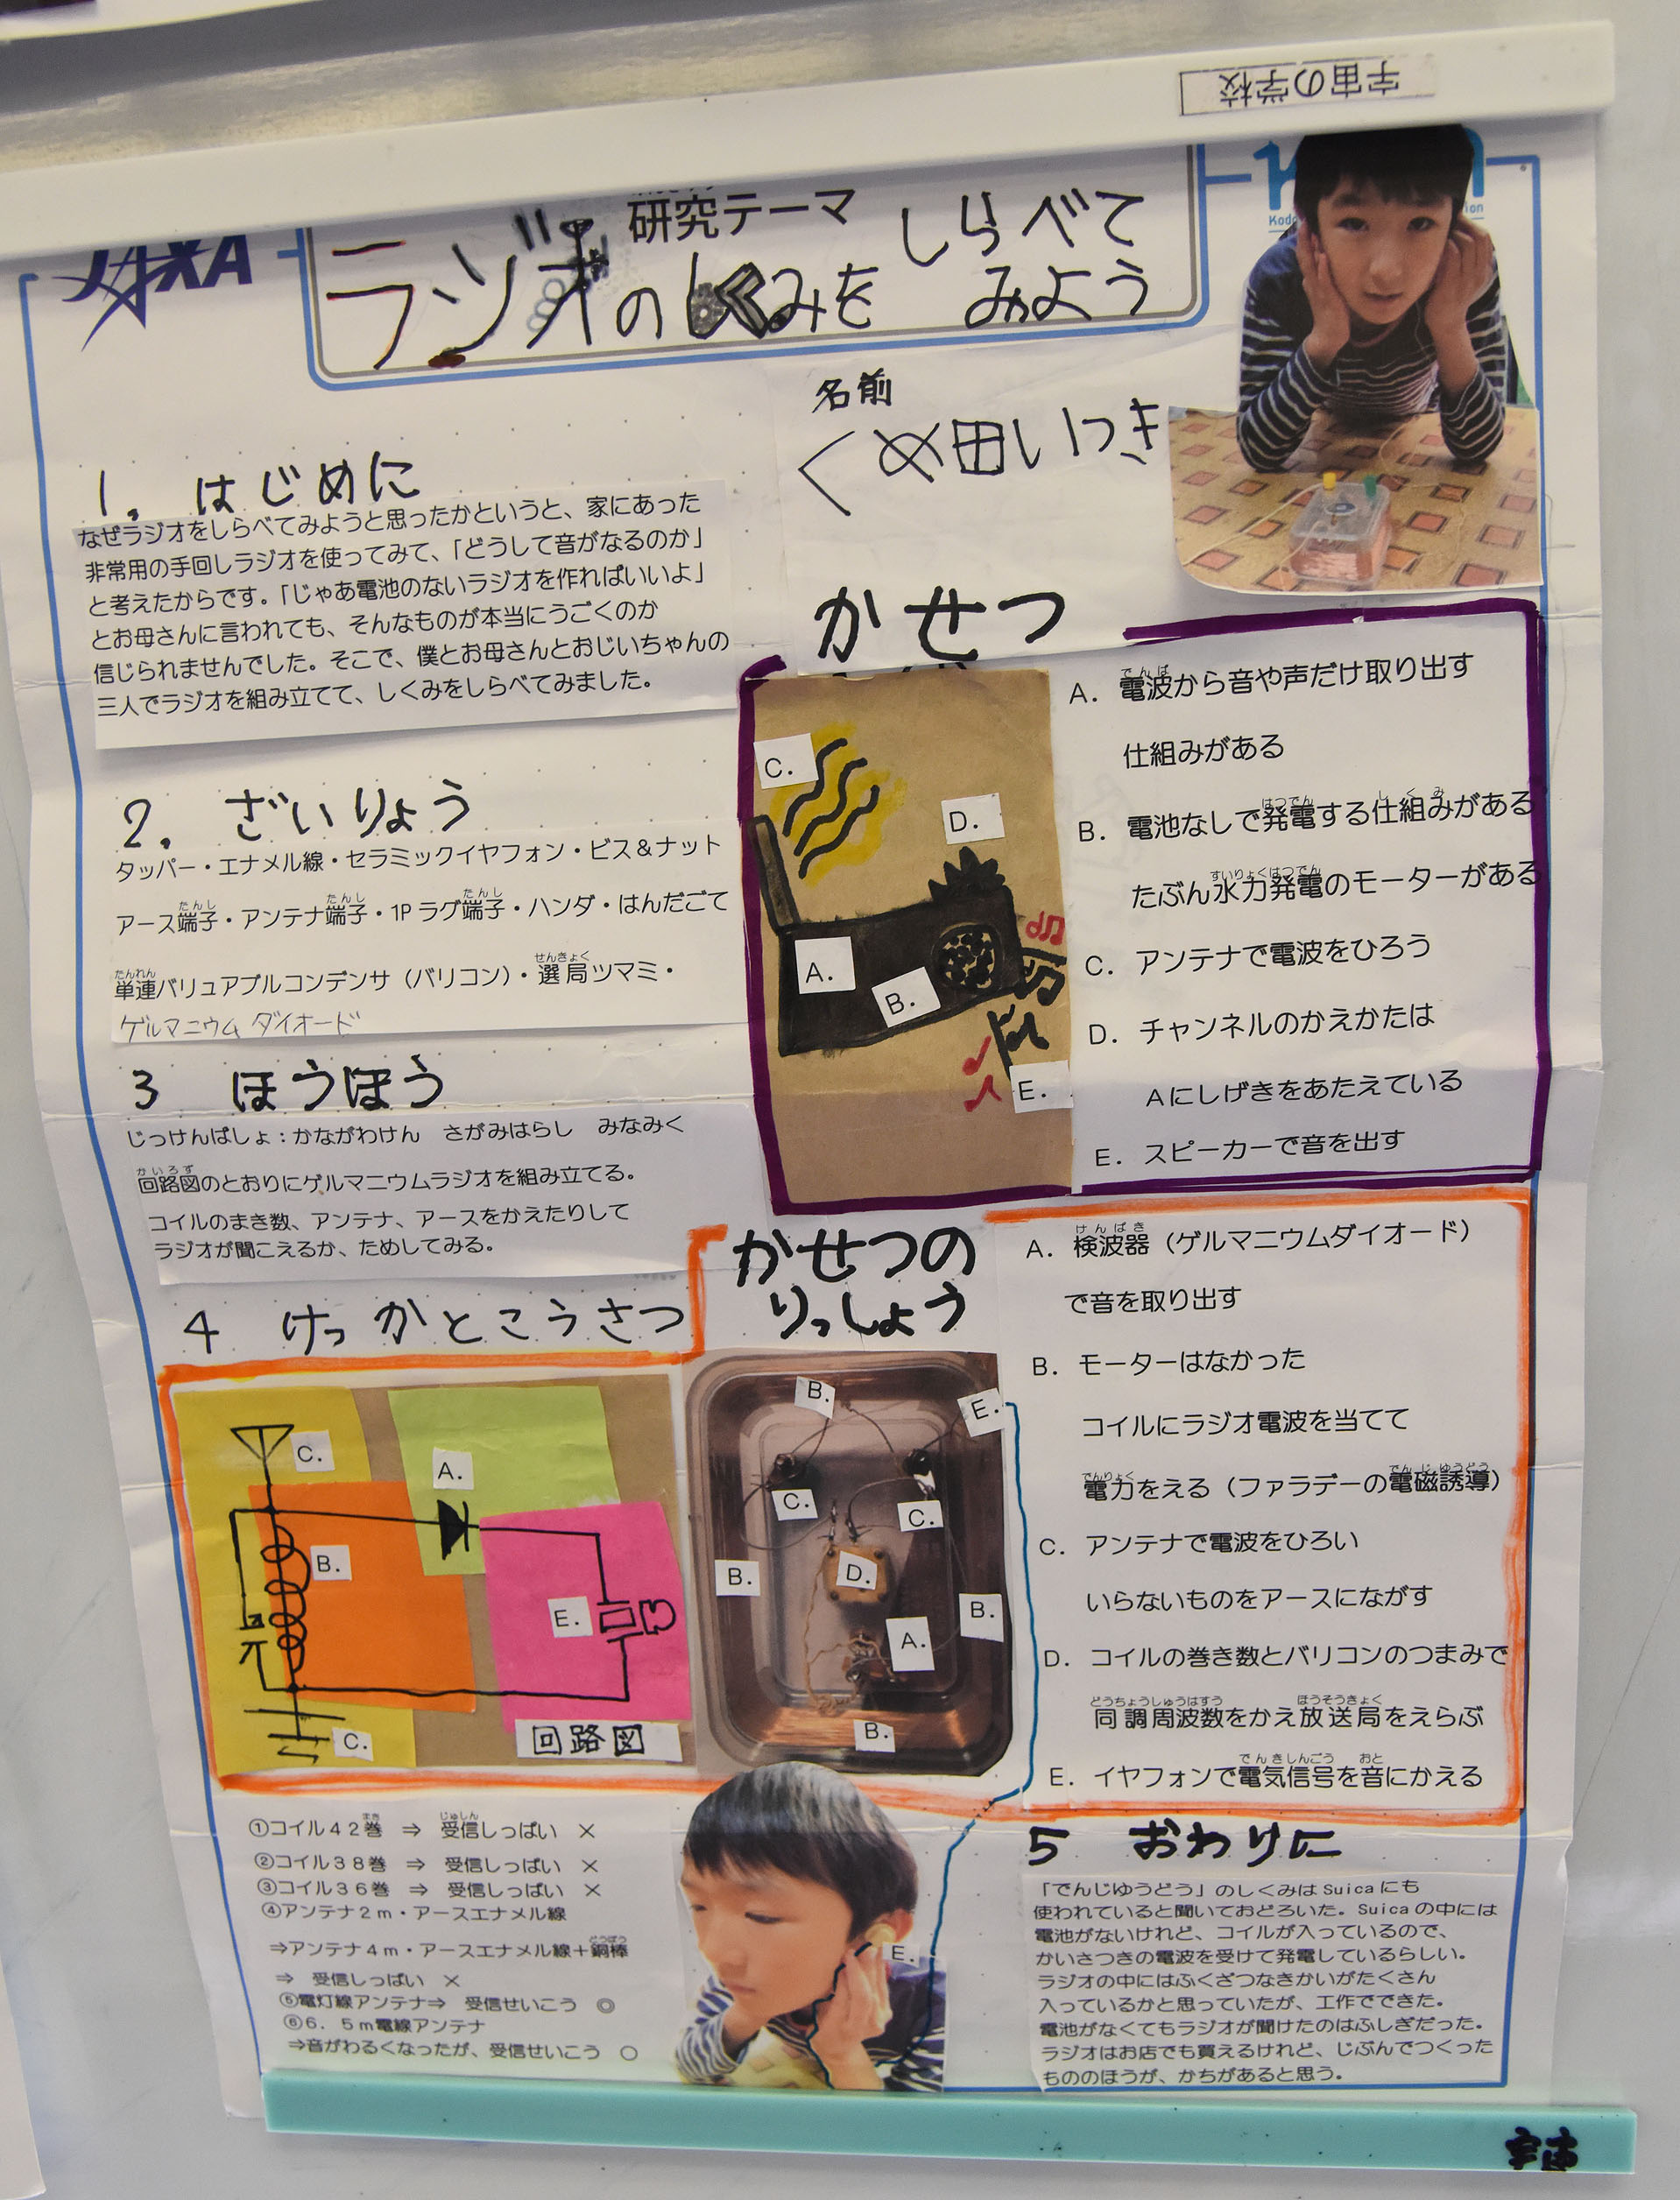 宇宙の学校
JAXA
研究テーマ
ラジオのしくみを しらべて
みよう
名前
くめ田いつき
1. はじめに
なぜラジオをしらべてみようと思ったかというと、家にあった
非常用の手回しラジオを使ってみて、「どうして音がなるのか」
と考えたからです。「じゃあ電池のないラジオを作ればいいよ」
とお母さんに言われても、そんなものが本当にうごくのか
信じられませんでした。そこで、僕とお母さんとおじいちゃんの
三人でラジオを組み立てて、しくみをしらべてみました。
2. ざいりょう
タッパー・エナメル線・セラミックイヤフォン・ビス＆ナット
アース端子・アンテナ端子・1Pラグ端子・ハンダ・はんだごて
単連バリュアブルコンデンサ（バリコン）・選局ツマミ・
ゲルマニウムダイオード
3 ほうほう
じっけんばしょ：かながわけん さがみはらし みなみく
回路図のとおりにゲルマニウムラジオを組み立てる。
コイルのまき数、アンテナ、アースをかえたりして
ラジオが聞こえるか、ためしてみる。
かせつ
C.
D.
A.
B.
E.
A. 電波から音や声だけ取り出す
仕組みがある
B. 電池なしで発電する仕組みがある
たぶん水力発電のモーターがある
C. アンテナで電波をひろう
D. チャンネルのかえかたは
Aにしげきをあたえている
E. スピーカーで音を出す
4 けっかとこうさつ
C.
A.
B.
E.
C.
回路図
かせつの
りっしょう
B.
E.
C.
C.
B.
D.
B.
A.
B.
A. 検波器（ゲルマニウムダイオード）
で音を取り出す
B. モーターはなかった
コイルにラジオ電波を当てて
電力をえる（ファラデーの電磁誘導）
C. アンテナで電波をひろい
いらないものをアースにながす
D. コイルの巻き数とバリコンのつまみで
同調周波数をかえ放送局をえらぶ
E. イヤフォンで電気信号を音にかえる
①コイル42巻 ⇒ 受信しっぱい ×
②コイル38巻 ⇒ 受信しっぱい ×
③コイル36巻 ⇒ 受信しっぱい ×
④アンテナ2m・アースエナメル線
⇒アンテナ4m・アースエナメル線＋銅棒
⇒ 受信しっぱい ×
⑤電灯線アンテナ⇒ 受信せいこう ◎
⑥6.5m電線アンテナ
⇒音がわるくなったが、受信せいこう ○
E.
5 おわりに
「でんじゆうどう」のしくみはSuicaにも
使われていると聞いておどろいた。Suicaの中には
電池がないけれど、コイルが入っているので、
かいさつきの電波を受けて発電しているらしい。
ラジオの中にはふくざつなきかいがたくさん
入っているかと思っていたが、工作でできた。
電池がなくてもラジオが聞けたのはふしぎだった。
ラジオはお店でも買えるけれど、じぶんでつくった
もののほうが、かちがあると思う。
宇宙